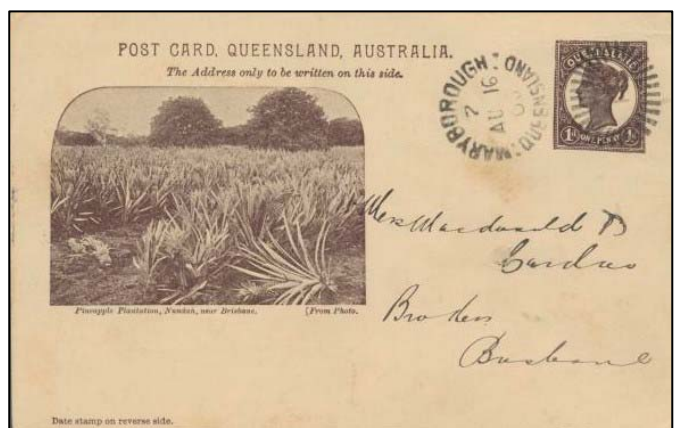 POST CARD, QUEENSLAND, AUSTRALIA.
The Address only to be written on this side.
MARYBOROUGH
QUEENSLAND
7
AU 16
QUEENSLAND
1D ONE PENNY 1D
Macdonald
Pineapple Plantation, Nundah, near Brisbane.
[From Photo.
Brisbane
Date stamp on reverse side.